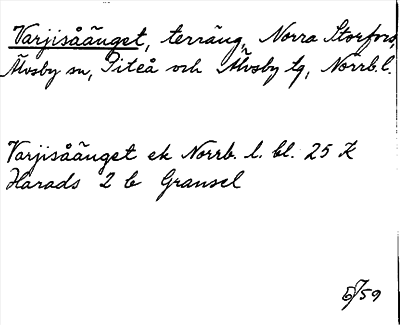 Varjisåänget, terräng, Norra Storfors,
Älvsby sn, Piteå och Älvsby tg, Norrb.l.
Varjisåänget ek Norrb. l. bl. 25 K
Harads 2 b Gransel